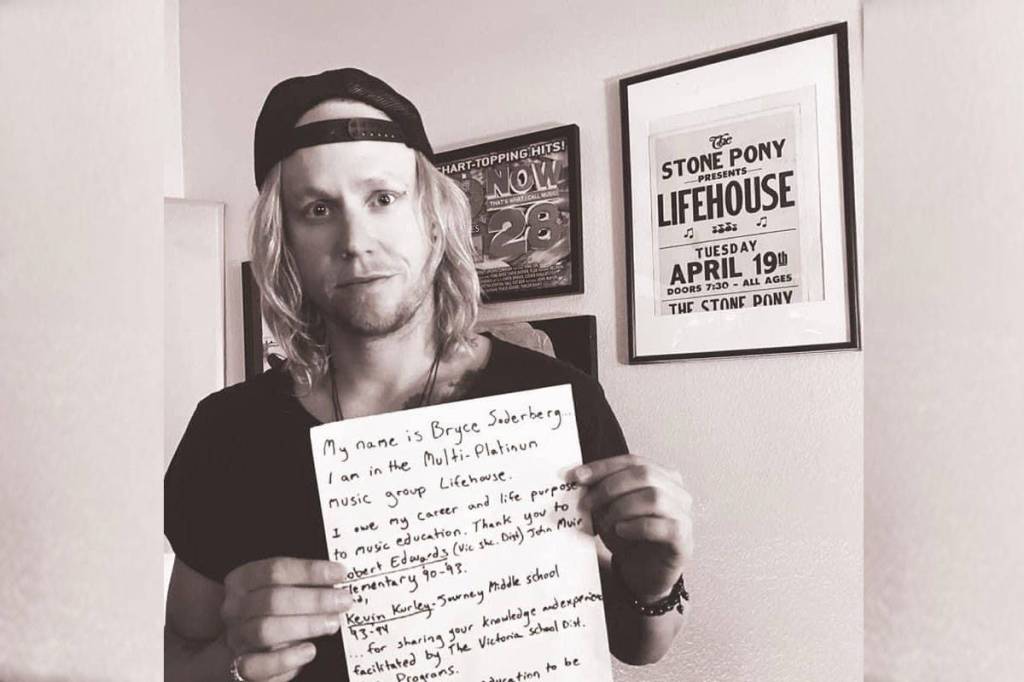 CHART-TOPPING HITS!
NOW
THAT'S WHAT I CALL MUSIC!
28
The
STONE PONY
PRESENTS
LIFEHOUSE
TUESDAY
APRIL 19th
DOORS 7:30 - ALL AGES
THE STONE PONY
My name is Bryce Soderberg...
I am in the Multi-Platinum
music group Lifehouse.
I owe my career and life purpose
to music education. Thank you to
Robert Edwards (Vic Sch. Dist) John Muir
Elementary 90-93.
Kevin Kurley-Journey Middle school
93-94
...for sharing your knowledge and experience
facilitated by The Victoria School Dist.
Programs.
education to be